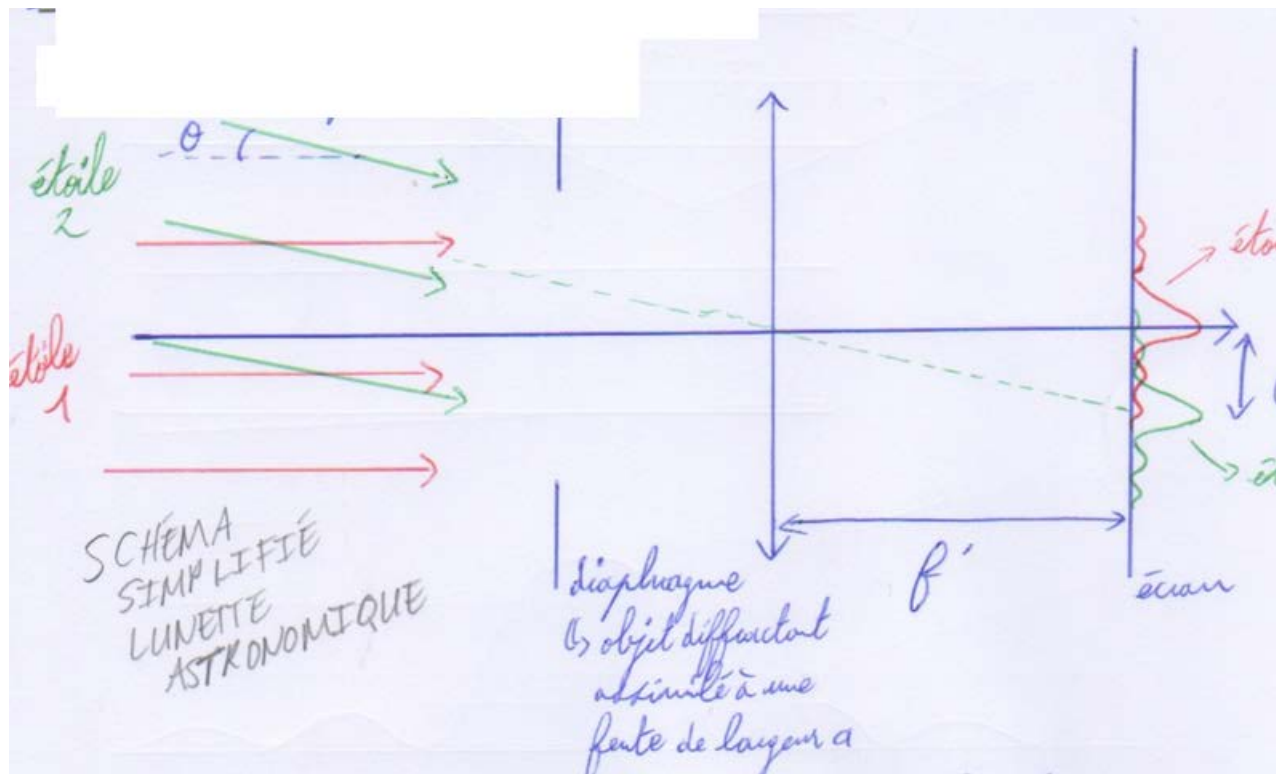 θ
étoile
2
étoile
1
SCHÉMA
SIMPLIFIÉ
LUNETTE
ASTRONOMIQUE
diaphragme
↳ objet diffractant
assimilé à une
fente de largeur a
f'
écran
éto
ét